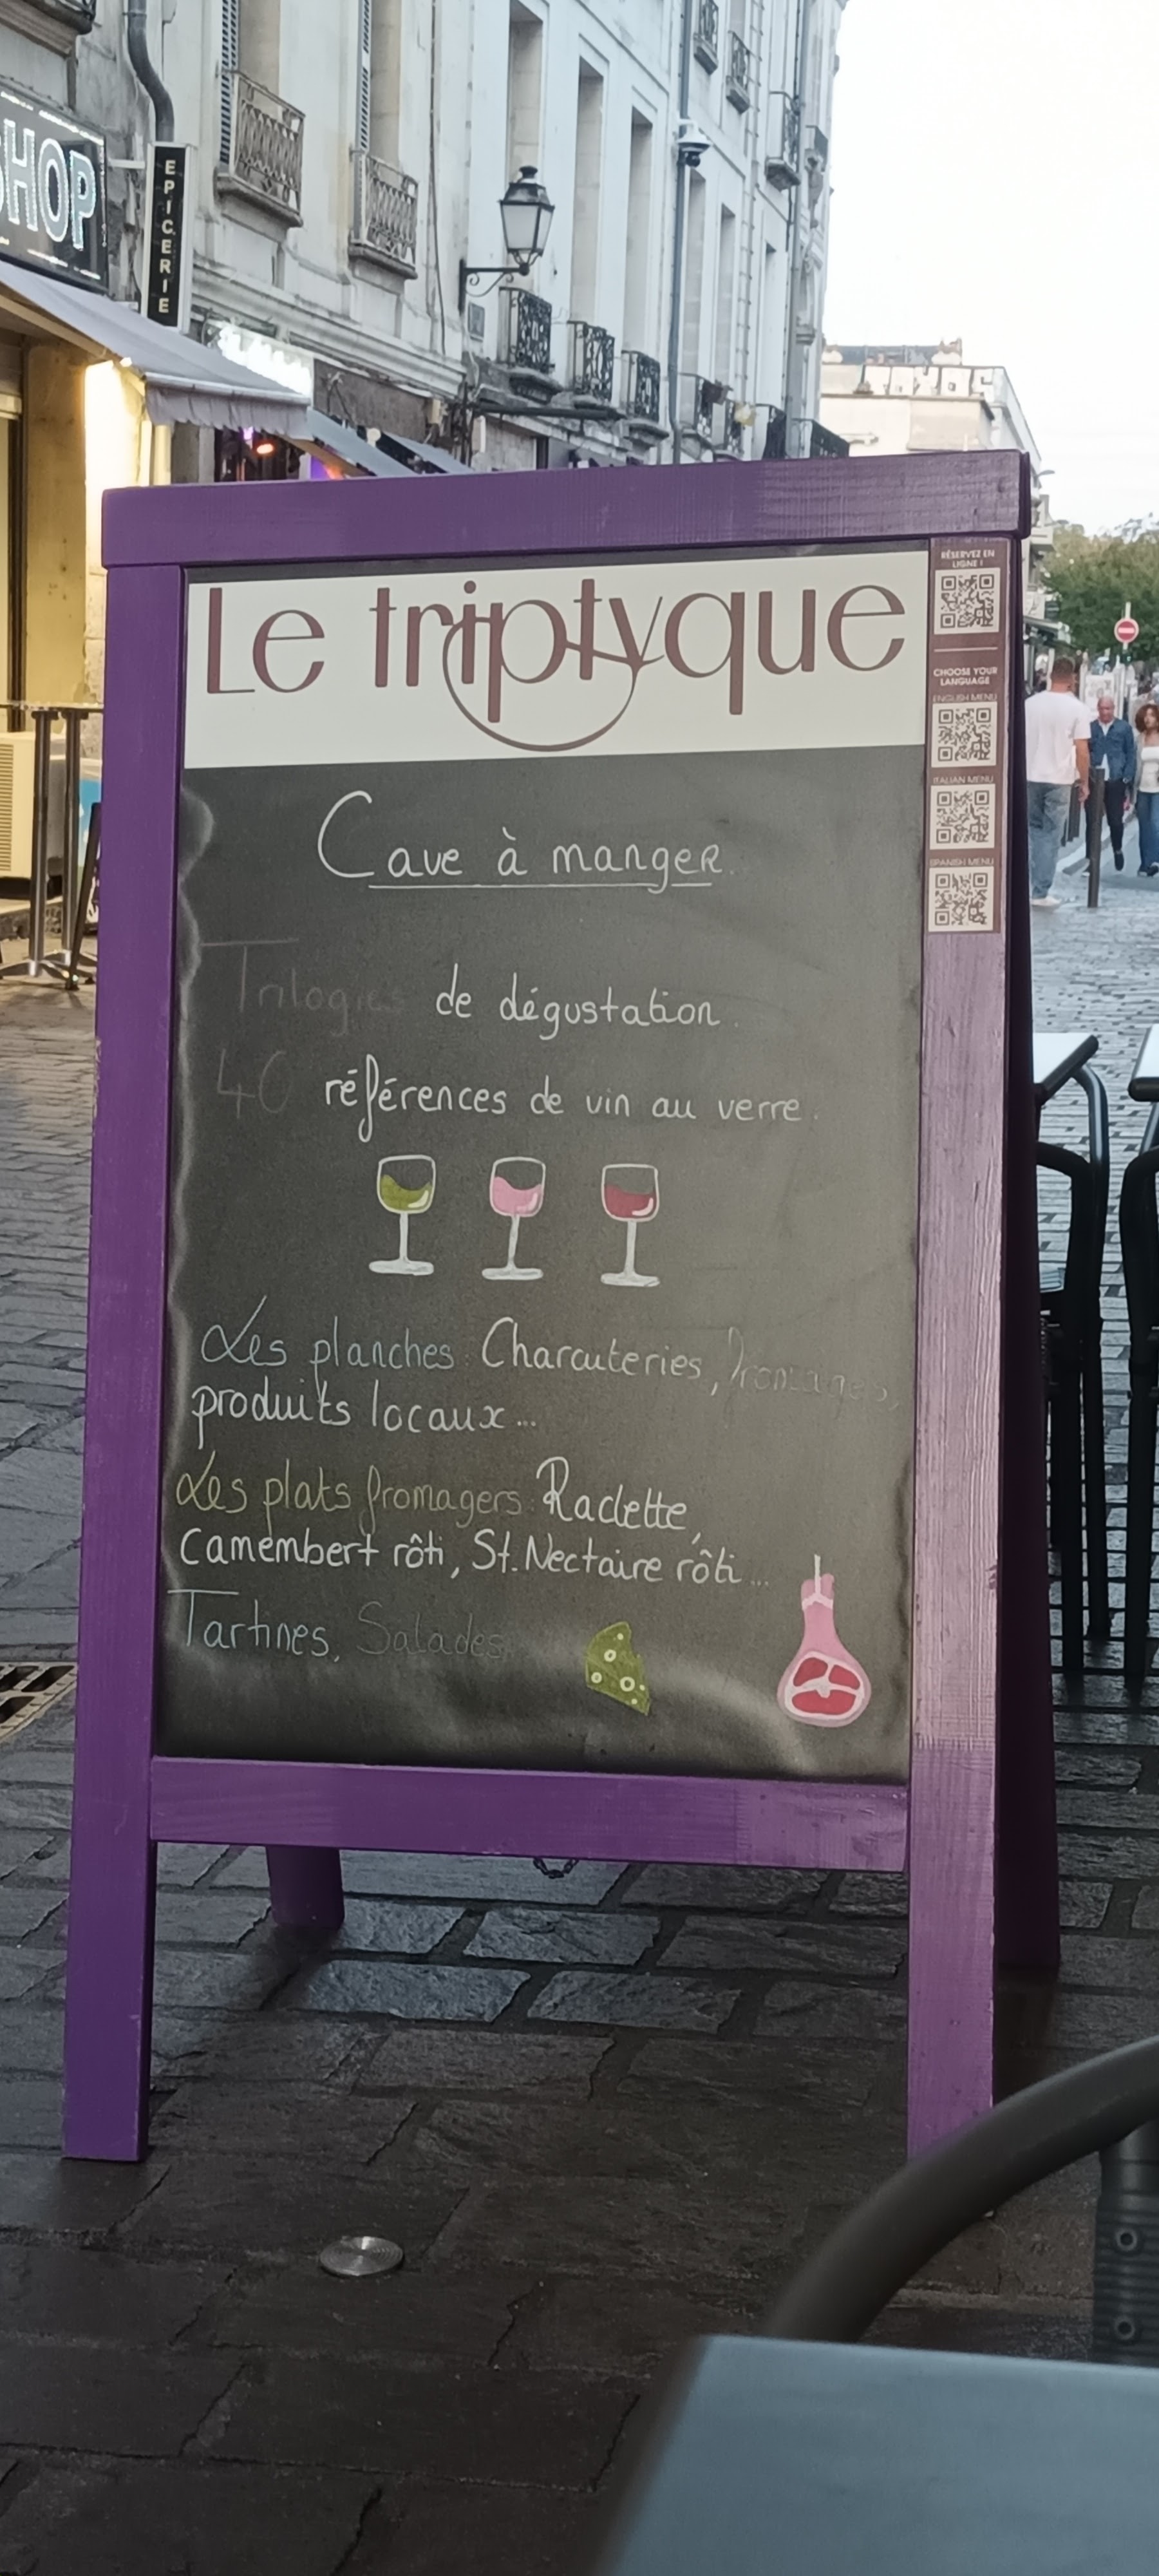 HOP
EPICERIE
Le triptyque
RÉSERVEZ EN
LIGNE !
CHOOSE YOUR
LANGUAGE
ENGLISH MENU
ITALIAN MENU
SPANISH MENU
Cave à manger.
Trilogies de dégustation.
40 références de vin au verre.
Les planches : Charcuteries, fromages,
produits locaux...
Les plats fromagers : Raclette,
Camembert rôti, St.Nectaire rôti...
Tartines, Salades